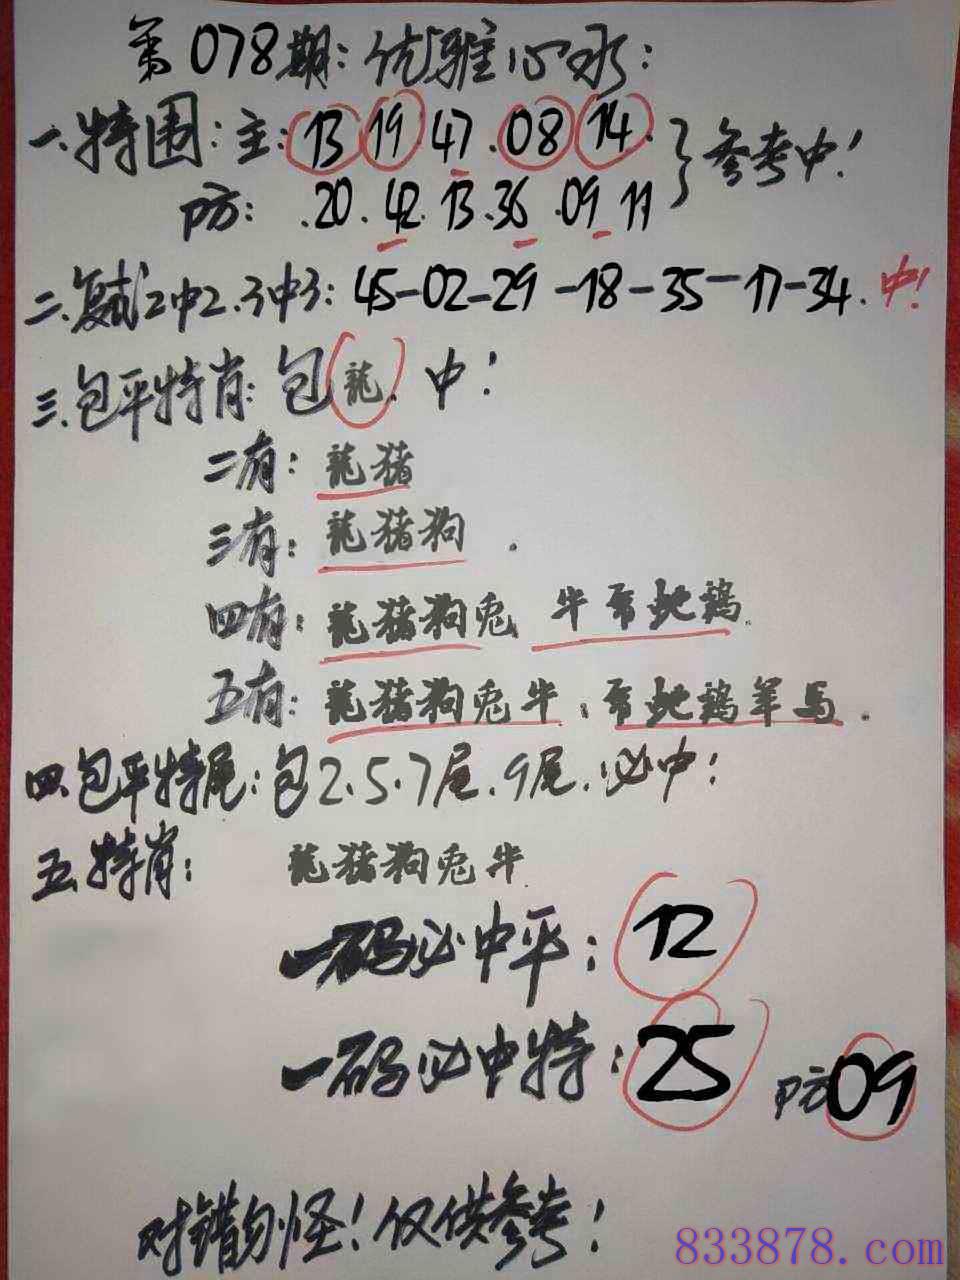 第078期:优雅心水:
一.特围:主:13 19.47.08.14.}参考中!
防:.20.42.13.36.09.11
二.复试2中2.3中3:45-02-29-18-35-17-34.中!
三.包平特肖:包龍.中!
二有:龍猪
三有:龍猪狗.
四有:龍猪狗兎 牛 蛇鷄.
五有:龍猪狗兎牛. 蛇鷄羊马.
四.包平特尾:包2.5.7尾.9尾.必中!
五.特肖:龍猪狗兎牛.
一码必中平:12
一码必中特:25 防09
对错勿怪!仅供参考!
833878.com